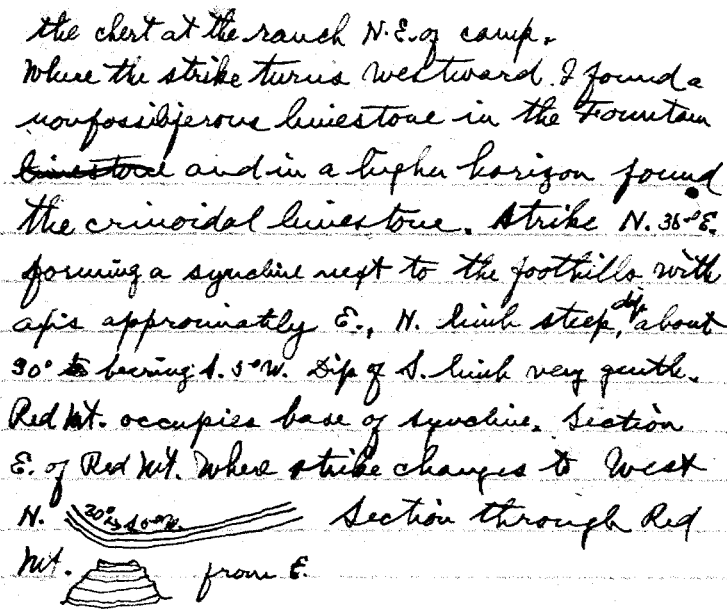 the chert at the ranch N.E. of camp.
Where the strike turns westward I found a
nonfossiliferous limestone in the Fountain
limestone and in a higher horizon found
the crinoidal limestone. Strike N. 36° E.
forming a syncline next to the foothills with
axis approximately E., N. limb steep, dip about
30° bearing S. 5° W. Dip of S. limb very gentle.
Red Mt. occupies base of syncline. Section
E. of Red Mt. where strike changes to West
N. 30° S 5° W. Section through Red
Mt. from E.